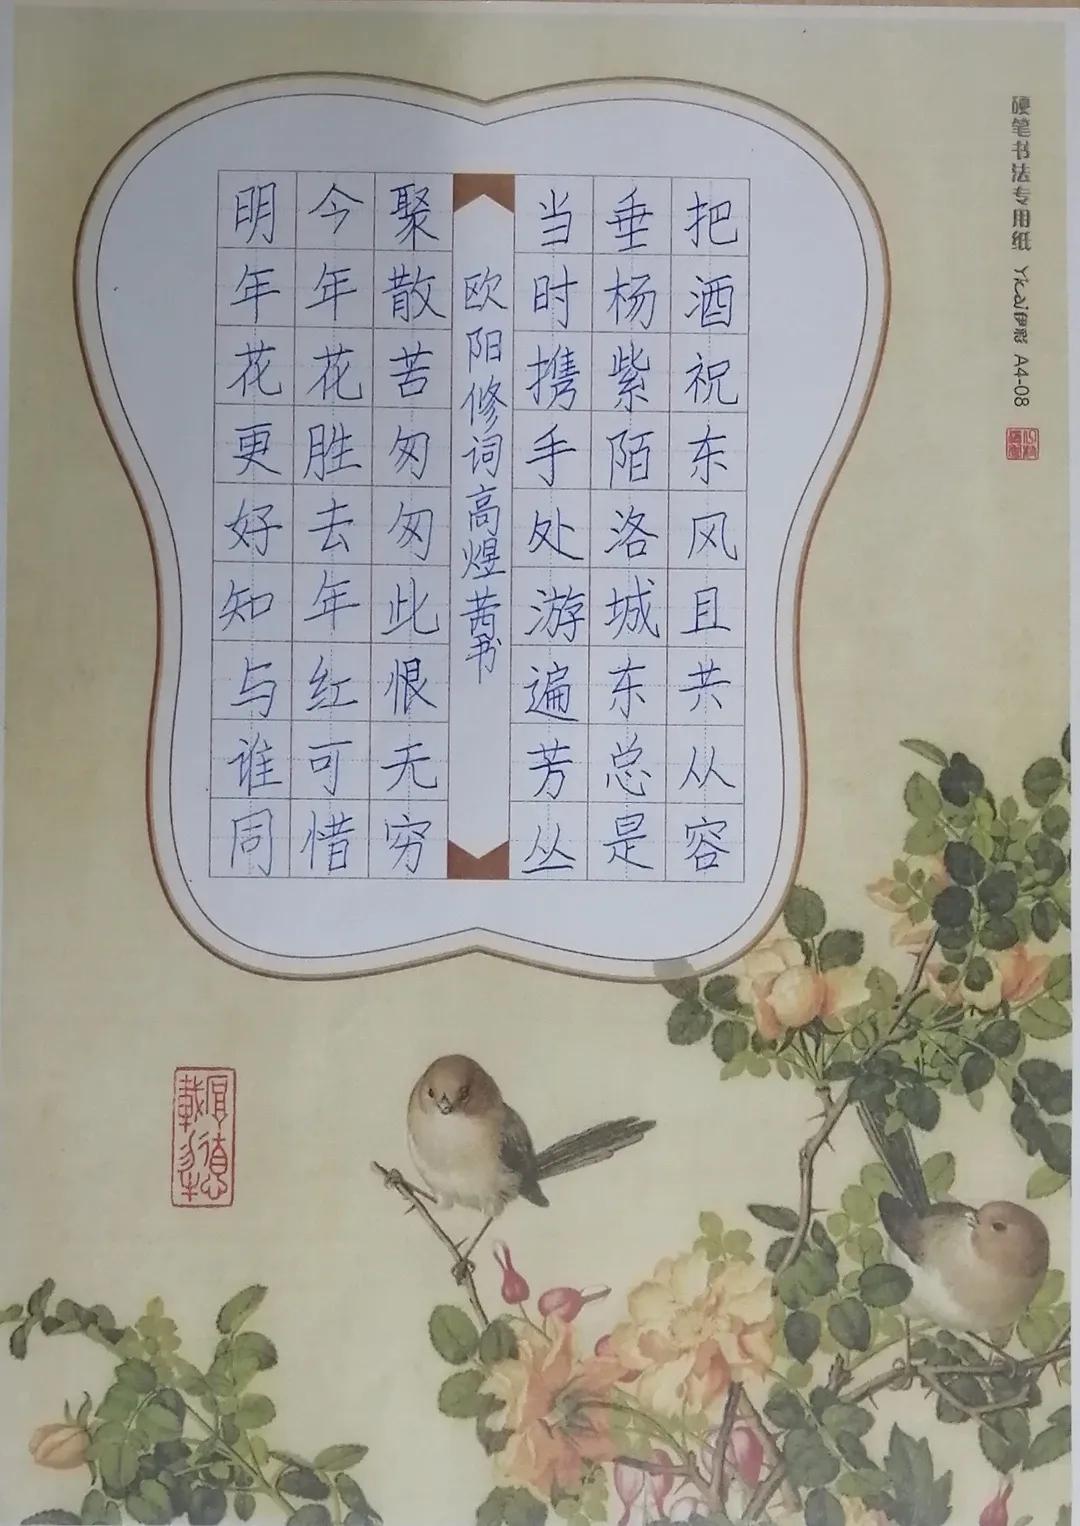 把酒祝东风且共从容
垂杨紫陌洛城东总是
当时携手处游遍芳丛
欧阳修词高煜茜书
聚散苦匆匆此恨无穷
今年花胜去年红可惜
明年花更好知与谁同
硬笔书法专用纸 Yicai伊彩 A4-08
厚德載物